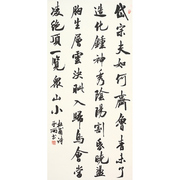 岱宗夫如何齊魯青未了
造化鍾神秀陰陽割昏曉盪
胸生層雲決眥入歸鳥會當
凌絕頂一覽眾山小
杜甫詩